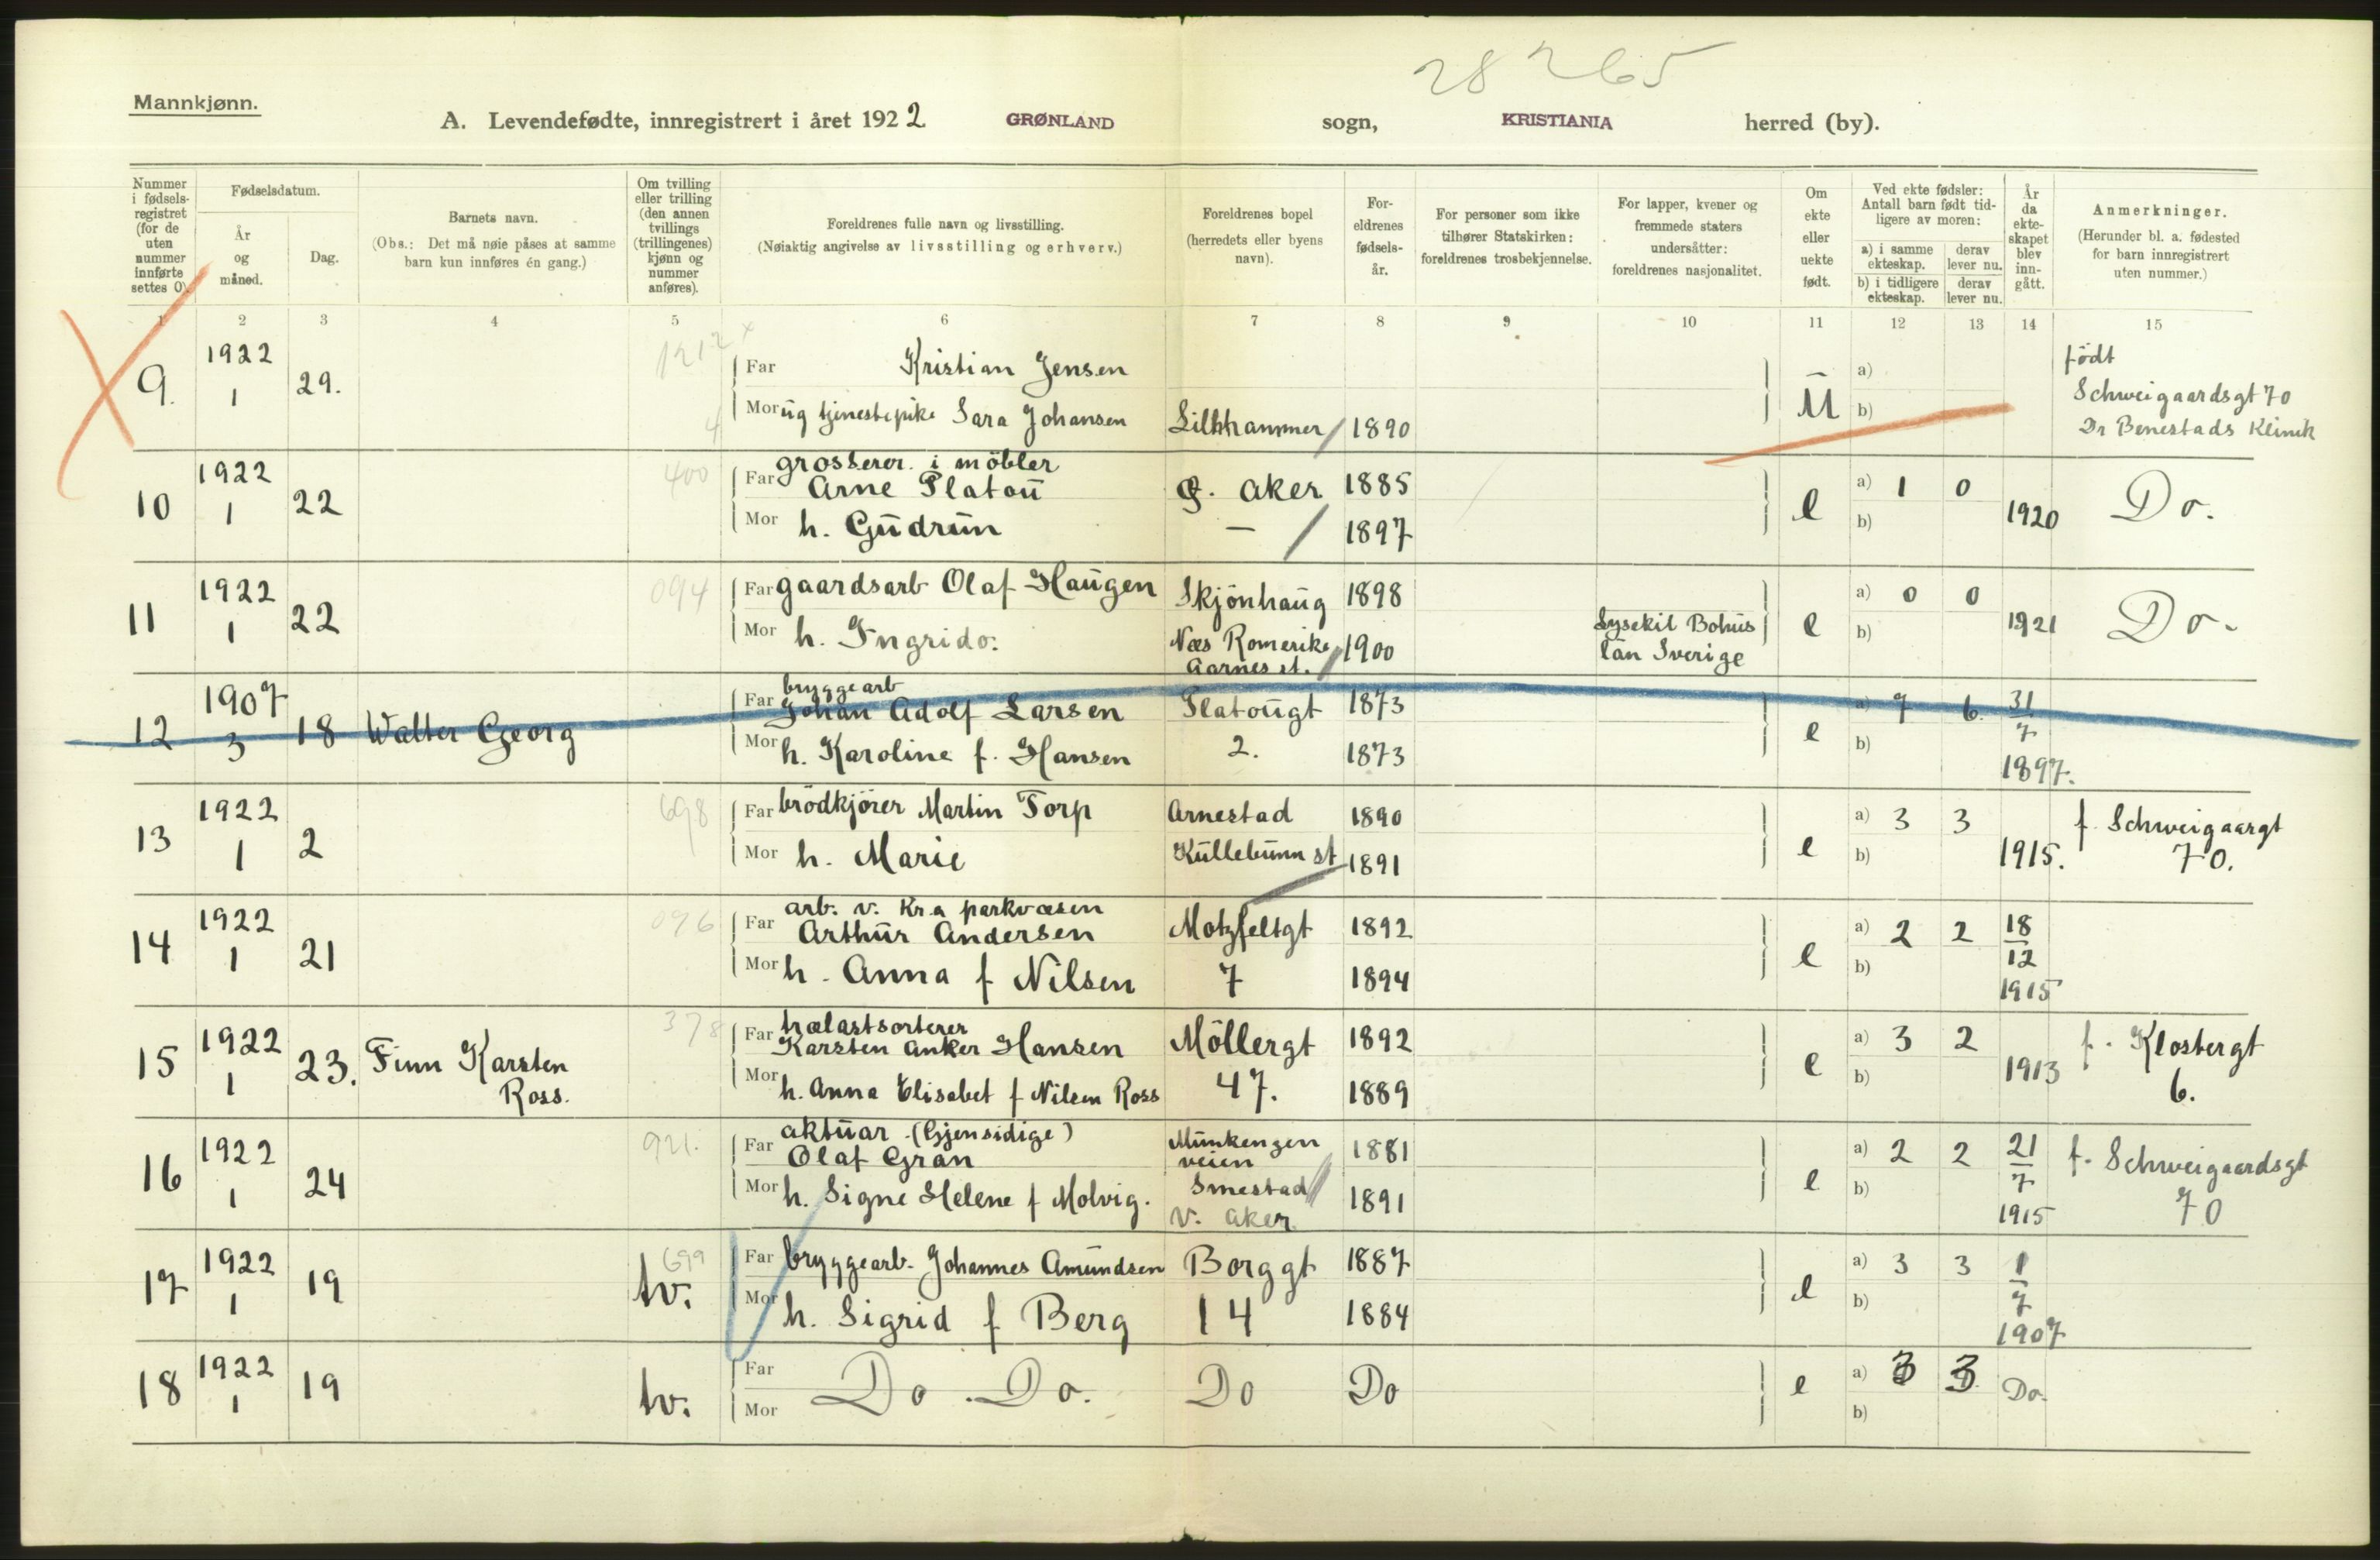 28265
Mannkjønn.
A. Levendefødte, innregistrert i året 1922. GRØNLAND sogn, KRISTIANIA herred (by).
Nummer i fødsels-registret (for de uten nummer innførte settes 0).
Fødselsdatum.
År og måned.
Dag.
Barnets navn.
(Obs.: Det må nøie påses at samme barn kun innføres én gang.)
Om tvilling eller trilling (den annen tvillings (trillingenes) kjønn og nummer anføres).
Foreldrenes fulle navn og livsstilling.
(Nøiaktig angivelse av livsstilling og erhverv.)
Foreldrenes bopel (herredets eller byens navn).
For-eldrenes fødsels-år.
For personer som ikke tilhører Statskirken: foreldrenes trosbekjennelse.
For lapper, kvener og fremmede staters undersåtter: foreldrenes nasjonalitet.
Om ekte eller uekte født.
Ved ekte fødsler: Antall barn født tid-ligere av moren:
a) i samme ekteskap.
derav lever nu.
b) i tidligere ekteskap.
derav lever nu.
År da ekte-skapet blev inn-gått.
Anmerkninger.
(Herunder bl. a. fødested for barn innregistrert uten nummer.)
1 2 3 4 5 6 7 8 9 10 11 12 13 14 15
9. 1922 1 29. 1212 x 4
Far Kristian Jensen
Mor ug tjenestepike Sara Johansen Lillehammer 1890
U a) b)
födt Schweigaardsgt 70
Dr Benestads Klinik
10 1922 1 22 400
Far grosserer i möbler
Arne Platou Ø. Aker 1885
Mor h. Gudrun — 1897
e a) 1 0 b) 1920 Do.
11 1922 1 22 094
Far gaardsarb Olaf Haugen Skjönhaug 1898
Mor h. Ingrid o: Næs Romerike Aarnes st. 1900
Lysekil Bohus län Sverige
e a) 0 0 b) 1921 Do.
12 1907 3 18 Walter Georg
Far bryggearb
Johan Adolf Larsen Platougt 1873
Mor h. Karoline f. Hansen 2. 1873
e a) 7 6. b) 31 7 1897.
13 1922 1 2 698
Far brödkjörer Martin Torp Arnestad 1890
Mor h. Marie Kullebunn st 1891
e a) 3 3 b) 1915.
f. Schweigaargt 70.
14 1922 1 21 096
Far arb. v. Kr.a parkvæsen
Arthur Andersen Motzfeltgt 1892
Mor h. Anna f Nilsen 7 1894
e a) 2 2 b) 18 12 1915
15 1922 1 23. Finn Karsten Ross. 378
Far trælastsorterer
Karsten Anker Hansen Möllergt 1892
Mor h. Anna Elisabet f Nilsen Ross 47. 1889
e a) 3 2 b) 1913
f. Klostergt 6.
16 1922 1 24 921.
Far aktuar (Gjensidige)
Olaf Gran Munkengen veien 1881
Mor h. Signe Helene f Molvig. Smestad V. Aker. 1891
e a) 2 2 b) 21 7 1915
f. Schweigaardsgt 70
17 1922 1 19 699 tv.
Far bryggearb. Johannes Amundsen Borggt 1887
Mor h. Sigrid f Berg 14 1884
e a) 3 3 b) 1 7 1907
18 1922 1 19 tv.
Far Mor Do. Do. Do Do
e a) 3 3. b) Do.